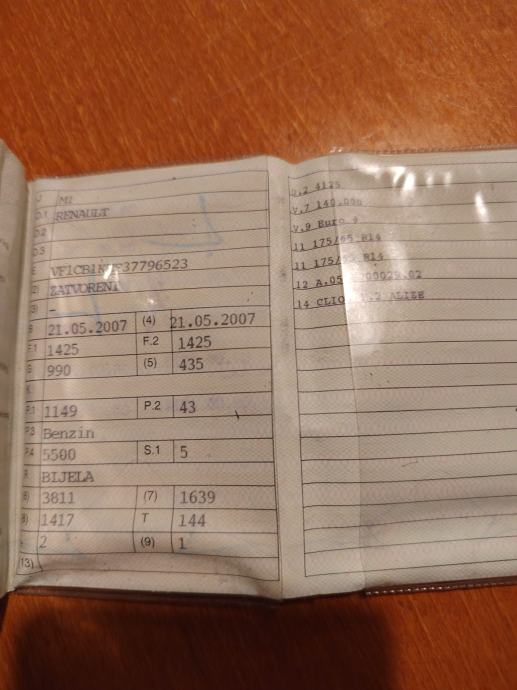 J M1
D.1 RENAULT
D.2
D.3
E
(2) ZATVORENI
(3) -
B 21.05.2007 (4) 21.05.2007
F.1 1425 F.2 1425
G 990 (5) 435
K
P.1 1149 P.2 43
P.3 Benzin
P.4 5500 S.1 5
R BIJELA
(6) 3811 (7) 1639
(8) 1417 T 144
2 (9) 1
(13)
U.2 4125
V.7 140.000
V.9 Euro
11 175/65 R14
11 175/65 R14
12
14 CLIO ALIZE